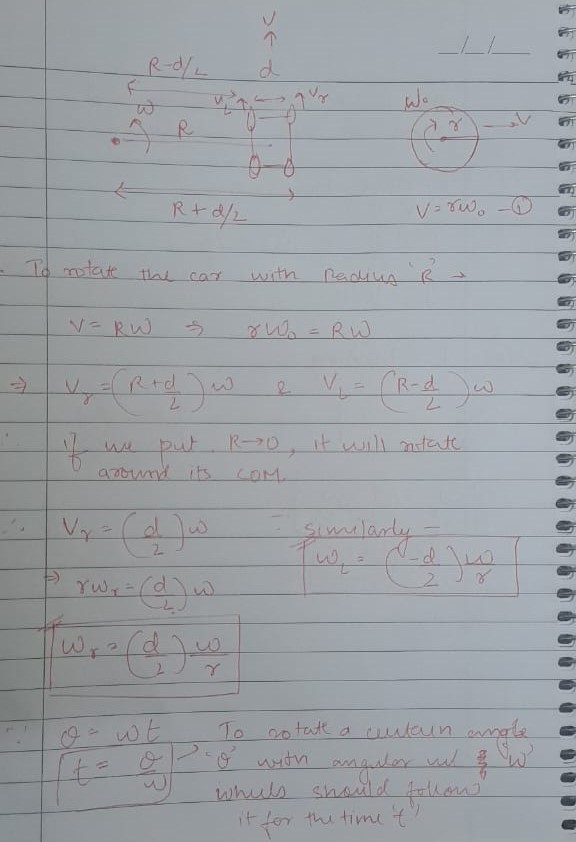 V
_/_/_
R-d/2
d
ω
V_L
V_r
R
R + d/2
ω₀
r
V
V = rω₀ - ①
To rotate the car with Radius 'R' →
V = Rω ⇒ rω₀ = Rω
⇒ V_r = (R+d/2)ω & V_L = (R-d/2)ω
∴ if we put R→0, it will rotate
around its COM
∴ V_r = (d/2)ω
∵ similarly -
ω_L = (-d/2) ω/r
⇒ rω_r = (d/2)ω
ω_r = (d/2) ω/r
∵ θ = ωt
t = θ/ω
→ To rotate a certain angle
'θ' with angular vel 'ω'
wheels should follow
it for the time 't'